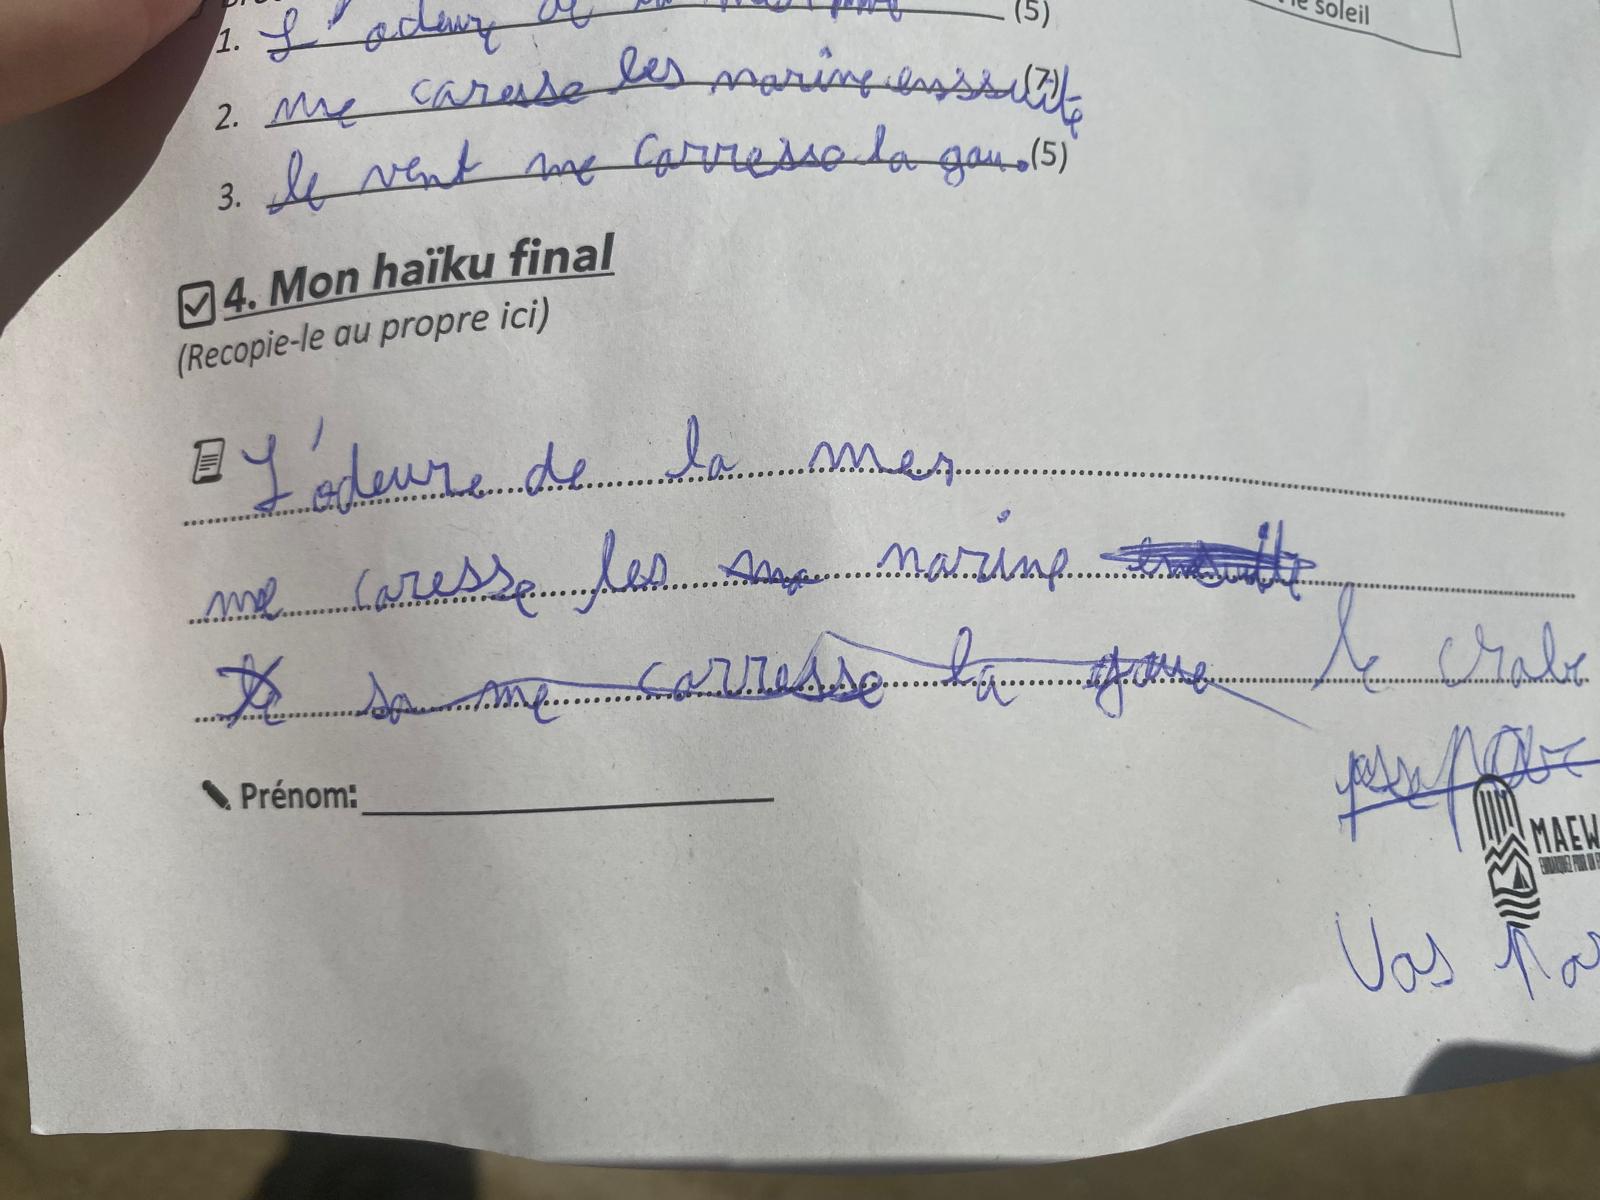 1. L'odeur de la mer (5)
le soleil
2. me caresse les narine enssuite (7)
3. le vent me carresse la gau. (5)
4. Mon haïku final
(Recopie-le au propre ici)
L'odeure de la mer
me caresse les narine ensuite
sa me carresse la goue le crabe
Prénom:
MAEW
Vas